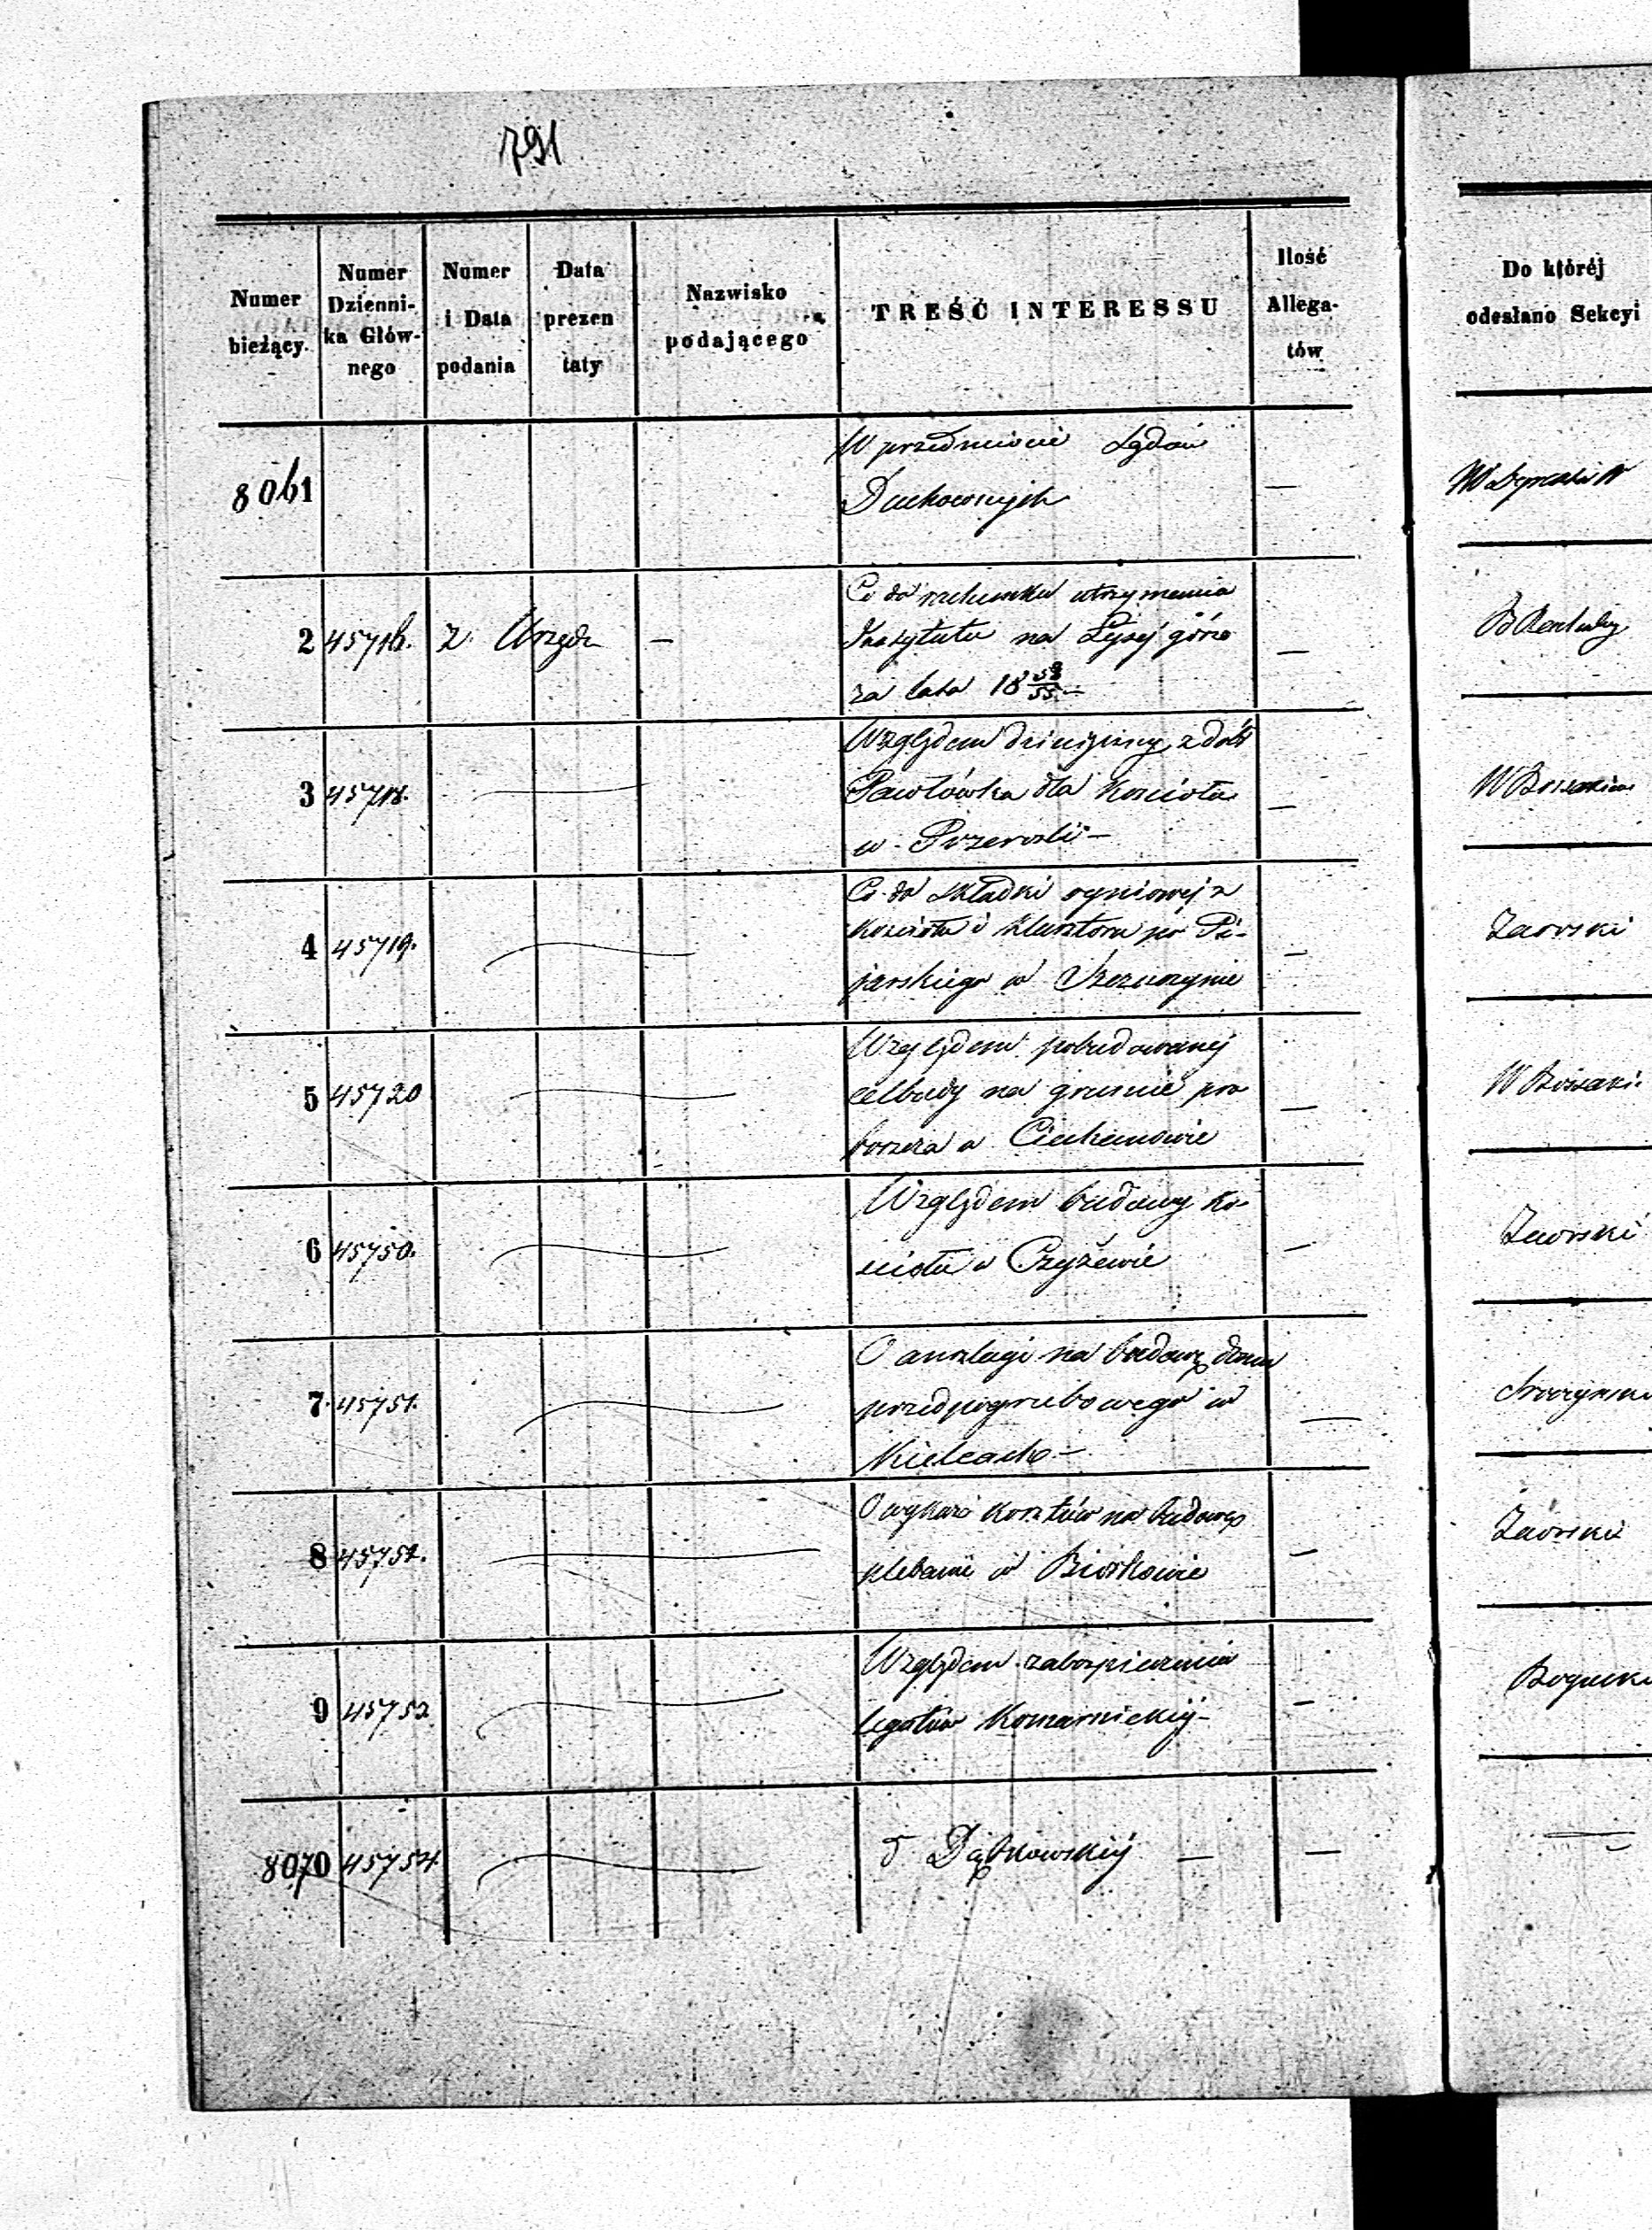 791
Numer bieżący
Numer Dzienni- ka Głów- nego
Numer i Data podania
Data prezen taty
Nazwisko podającego
TREŚĆ INTERESSU
Ilość Allega- tów
Do któréj odesłano Sekcyi
8061
W przedmiocie Sądów
Duchownych —
2 45716. Z. Urzędu —
Co do rachunku utrzymania
Instytutu na Łysej górze —
za lata 18
3 45718.
Względem dziesięciny z dóbr
Pawłówka dla Kościoła —
w Przerośli —
4 45719.
Co do składki ogniowej z
Kościoła i Klasztoru po Pi-
jarskiego w Szczuczynie —
Zaorski
5 45720
Względem pobudowanej
na gruncie pro
boszcza w Ciechanowie —
6 45750.
Względem budowy Ko-
ścioła w Czyżewie —
Zaorski
7. 45751.
O anszlagi na budowę domu
przedpogrzebowego w —
Kielcach —
8 45752.
O wykaz kosztów na budowę —
plebanii w Biórkowie
Zaorski
9 45753
Względem zabezpieczenia
legatów Komarnickiej — —
8070 45754
Dąbkowskiej — —